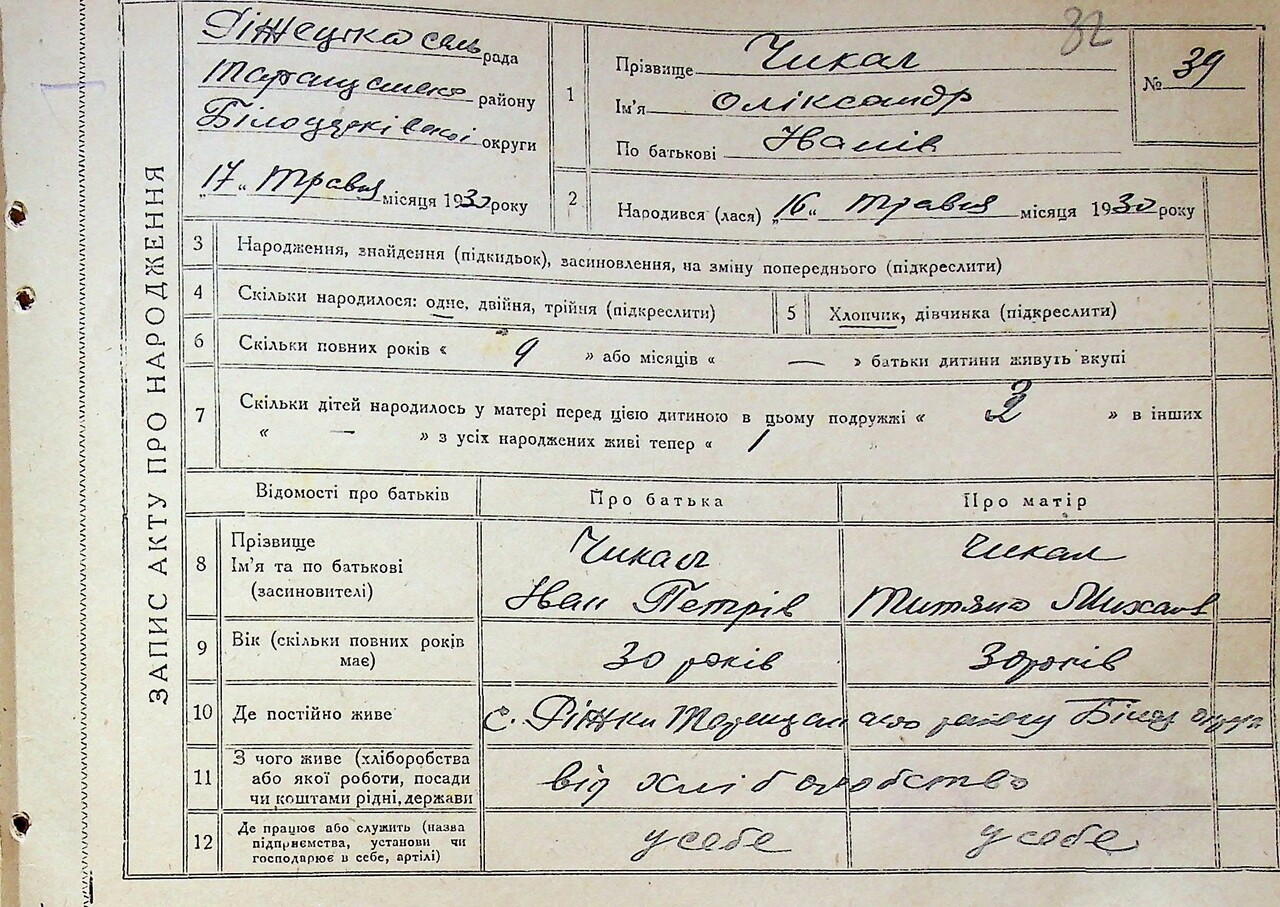 32
Ріжецка сель рада
Таращанско району
Білоцерківскої округи
„17“ Травня місяця 1930 року
ЗАПИС АКТУ ПРО НАРОДЖЕННЯ
1
Прізвище Чикал
Ім'я Оліксандр
По батькові Іванів
№ 39
2
Народився (лася) „16“ травня місяця 1930 року
3 Народження, знайдення (підкидьок), засиновлення, на зміну попереднього (підкреслити)
4 Скільки народилося: одне, двійня, трійня (підкреслити)
5 Хлопчик, дівчинка (підкреслити)
6 Скільки повних років « 9 » або місяців « — » батьки дитини живуть вкупі
7 Скільки дітей народилось у матері перед цією дитиною в цьому подружжі « » в інших
« — » з усіх народжених живі тепер « 1
Відомості про батьків Про батька Про матір
8
Прізвище Чикал Чикал
Ім'я та по батькові
(засиновителі) Іван Петрів Титяна Михалв
9 Вік (скільки повних років
має) 30 років 30 років
10 Де постійно живе с. Ріжки Таращанского району Білоц округи
11 З чого живе (хліборобства
або якої роботи, посади
чи коштами рідні, держави від хліборобство
12 Де працює або служить (назва
підприємства, установи чи
господарює в себе, артілі) у себе у себе